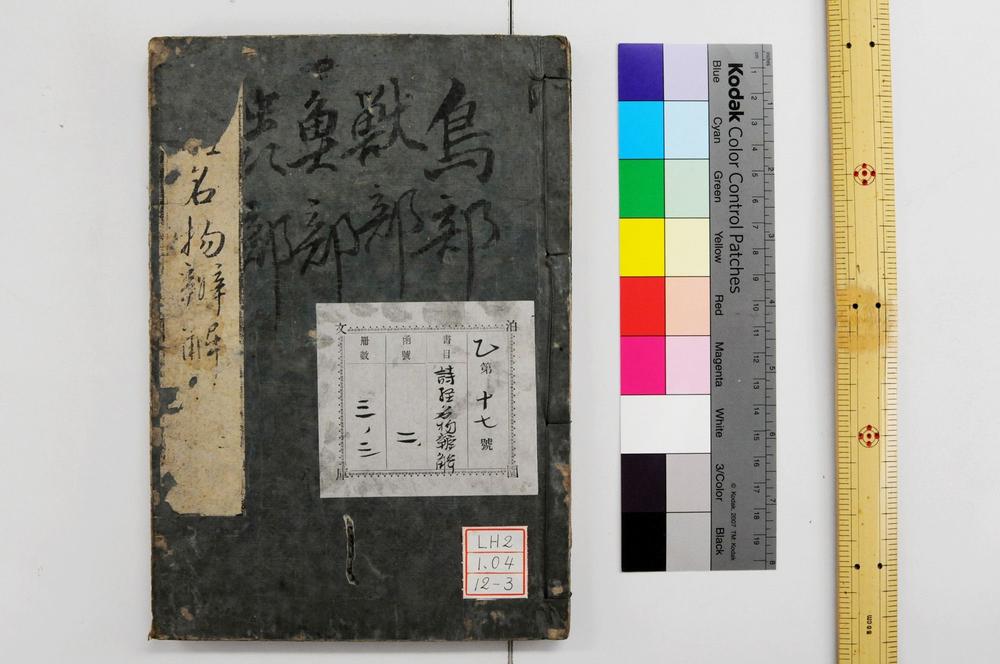 鳥部
獣部
魚部
虫部
名物辨解
泊園文庫
乙第十七號
書目 詩経名物辨解
函號 二
冊數 三ノ三
LH2
1.04
12-3
Kodak Color Control Patches
Blue
Cyan
Green
Yellow
Red
Magenta
White
3/Color
Black
© Kodak, 2007 TM: Kodak
inches
1 2 3 4 5 6 7 8
cm
1 2 3 4 5 6 7 8 9 10 11 12 13 14 15 16 17 18 19